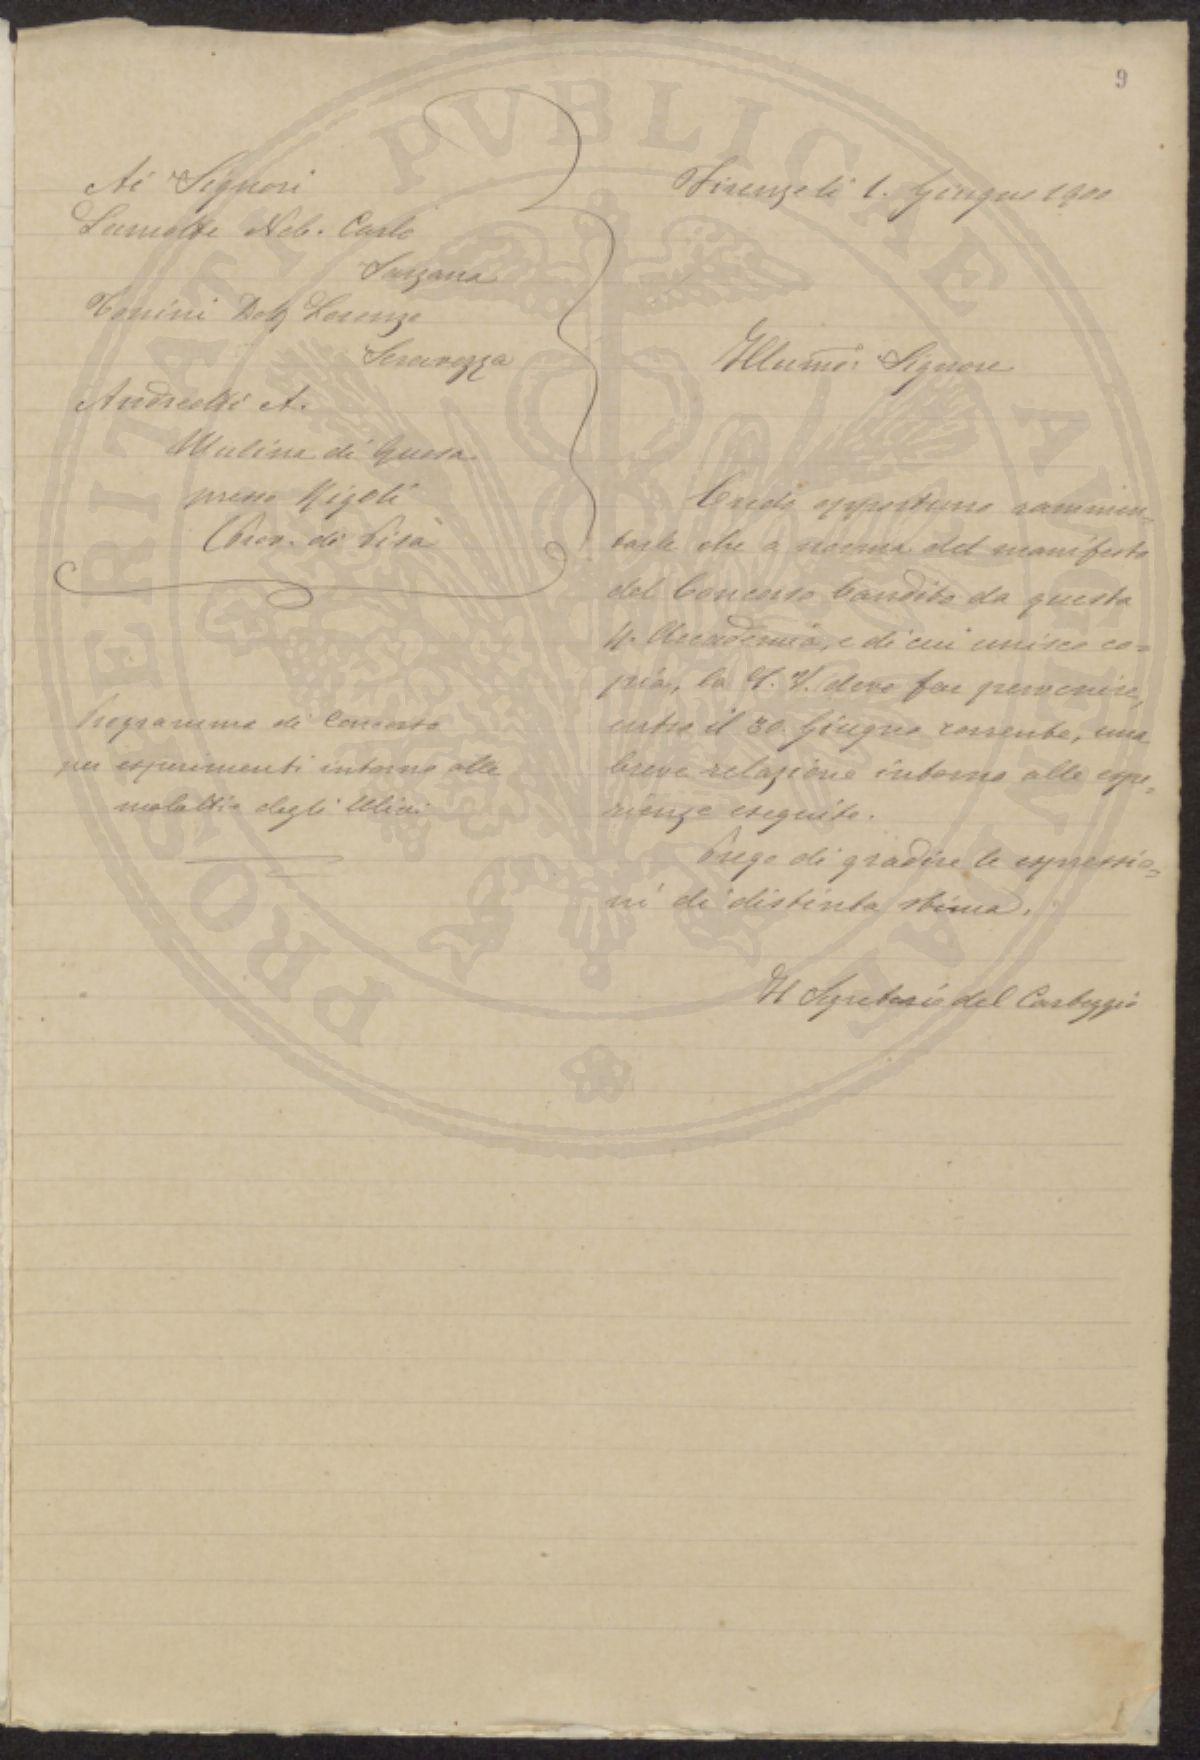 9
Ai Signori
Lamotte Nob. Carlo
Sarzana
Tonini Dott. Lorenzo
Seravezza
Andreotti A.
Mulina di Quosa
presso Rigoli
(Prov. di Pisa
Programma di Concorso
per esperimenti intorno alle
malattie degli Ulivi
Firenze li 1. Giugno 1900
Illumo: Signore
Credo opportuno rammen=
tarle che a norma del manifesto
del Concorso bandito da questa
R. Accademia, e di cui unisco co=
pia, la S. V. deve far pervenire,
entro il 30 Giugno corrente, una
breve relazione intorno alle espe=
rienze eseguite.
Prego di gradire le espressio=
ni di distinta stima.
Il Segretario del Carteggio
PROSPERITATI PVBLICAE AVGENDAE